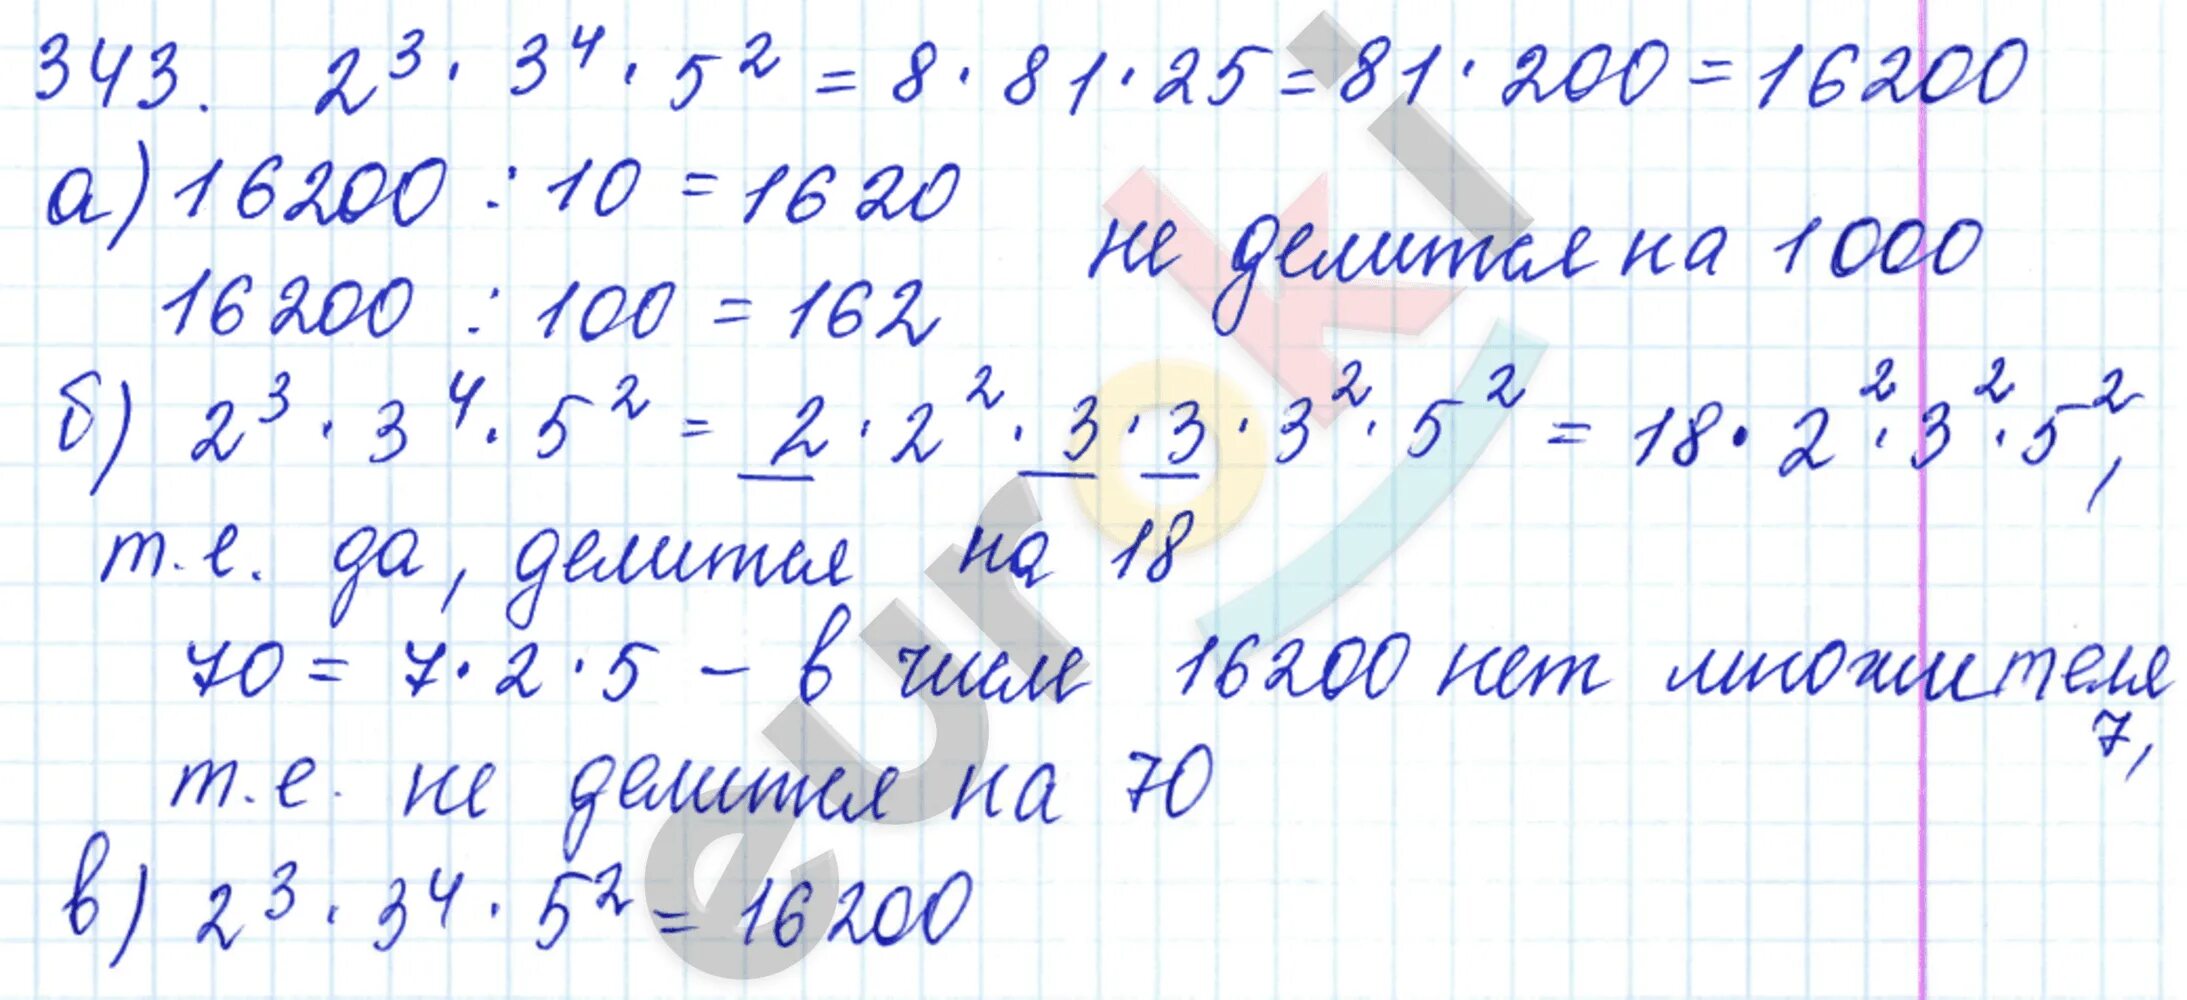 343. 2³ · 3⁴ · 5² = 8 · 81 · 25 = 81 · 200 = 16200
а) 16200 : 10 = 1620
не делится на 1000
16200 : 100 = 162
б) 2³ · 3⁴ · 5² = 2 · 2² · 3 · 3 · 3² · 5² = 18 · 2² · 3² · 5²,
т.е. да, делится на 18
70 = 7 · 2 · 5 – в числе 16200 нет множителя
7,
т.е. не делится на 70
в) 2³ · 3⁴ · 5² = 16200
euroki